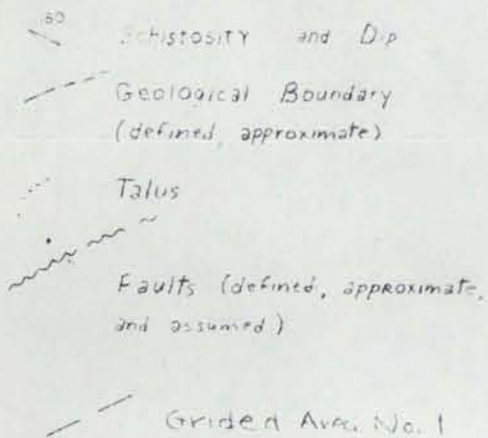 60
Schistosity and Dip
Geological Boundary
(defined, approximate)
Talus
Faults (defined, approximate,
and assumed)
Grided Area No. 1